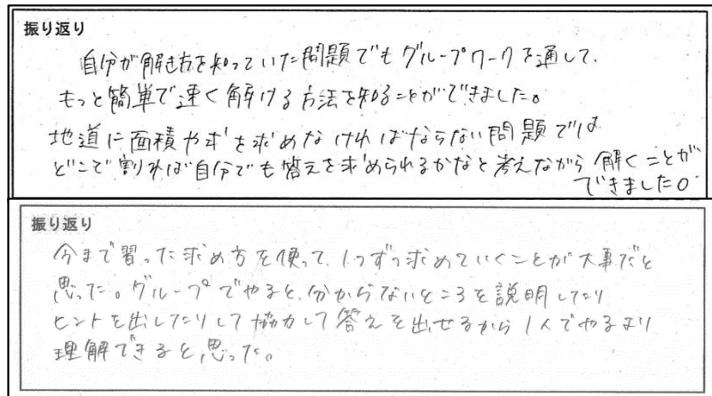 振り返り
自分が解き方を知っていた問題でもグループワークを通して、
もっと簡単で速く解ける方法を知ることができました。
地道に面積や求を求めなければならない問題では
どこで割れば自分でも答えを求められるかなと考えながら解くことが
できました。
振り返り
今まで習った求め方を使って、1つずつ求めていくことが大事だと
思った。グループでやると、分からないところを説明したり
ヒントを出したりして協力して答えを出せるから1人でやるより
理解できると思った。